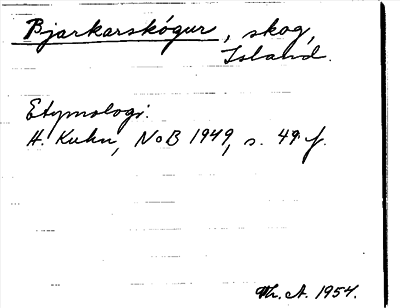 Bjarkarskógur, skog,
Island.
Etymologi:
H. Kuhn, NoB 1949, s. 49 f.
Th. A. 1954.